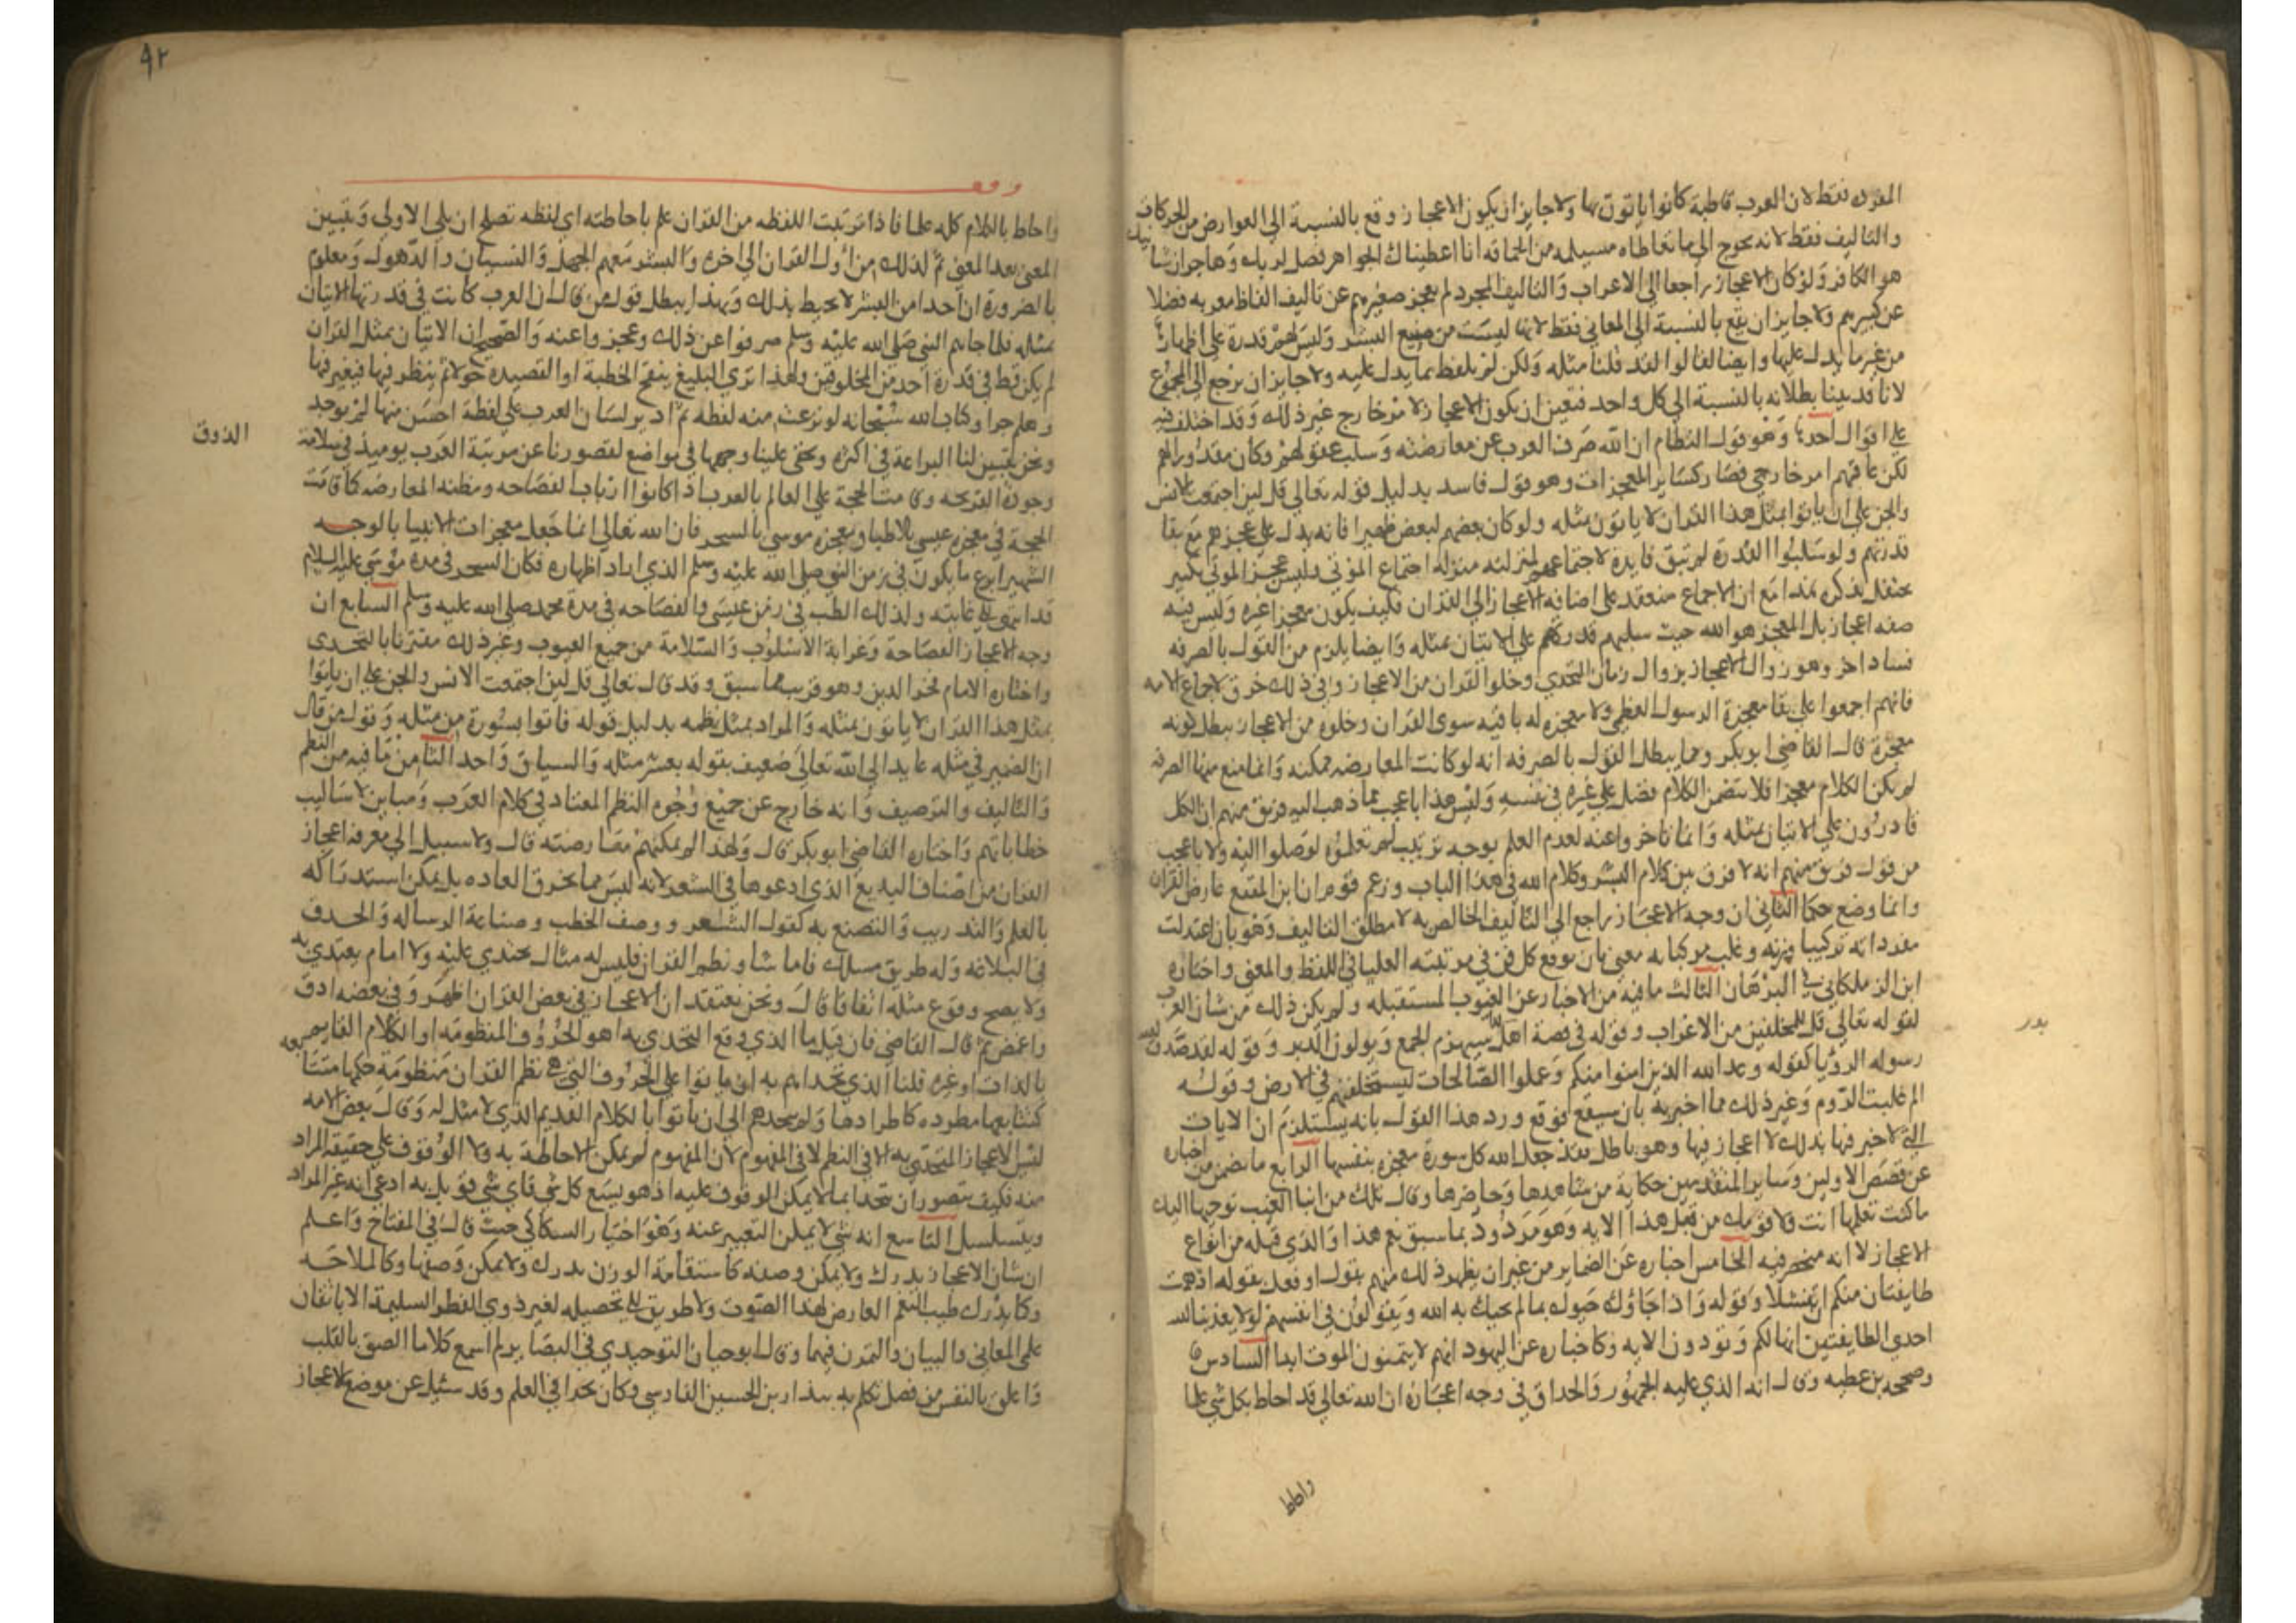 المفرده فقط لان العرب قاطبة كانوا ياتون بها ولا جايز ان يكون الاعجاز وقع بالنسبة الي العوارض من الحركات
والتاليف فقط لانه يحوج الي ما تعاطاه مسيلمه من الحماقه انا اعطيناك الجواهر فصل لربك وهاجر ان شانيك
هو الكافر ولو كان الاعجاز راجعا الي الاعراب والتاليف المجرد لم يعجز صغيرهم عن تاليف الفاظ معربه فضلا
عن كبيرهم ولا جايز ان يقع بالنسبة الي المعاني فقط لانها ليست من صنيع البشر وليس لهم قدرة علي اظهارها
من غير ما يدل عليها وايضا لقالوا لقد قلنا مثله ولكن لم نلفظ بما يدل عليه ولا جايز ان يرجع الي المجموع
لانا قد بينا بطلانه بالنسبة الي كل واحد فتعين ان يكون الاعجاز لامر خارج غير ذلك وقد اختلف فيه
علي اقوال احدها وهو قول النظام ان الله صرف العرب عن معارضته وسلب عقولهم وكان مقدورا لهم
لكن عاقهم امر خارجي فصار كساير المعجزات وهو قول فاسد بدليل قوله تعالي قل لين اجتمعت الانس
والجن علي ان ياتوا بمثل هذا القران لا ياتون بمثله ولو كان بعضهم لبعض ظهيرا فانه يدل علي عجزهم مع بقا
قدرتهم ولو سلبوا القدرة لم تبق فايدة لاجتماعهم لمنزلته منزلة اجتماع الموتي وليس عجز الموتي بكبير
يحتفل بذكره هذا مع ان الاجماع منعقد علي اضافة الاعجاز الي القران فكيف يكون معجزا غيره وليس فيه
صفه اعجاز بل المعجز هو الله حيث سلبهم قدرتهم علي الاتيان بمثله وايضا يلزم من القول بالصرفه
فساد اخر وهو زوال الاعجاز بزوال زمان التحدي وخلوا القران من الاعجاز وفي ذلك خرق لاجماع الامه
فانهم اجمعوا علي بقا معجزة الرسول العظمي ولا معجزه له باقيه سوي القران وخلوه من الاعجاز يبطل كونه
معجزة قال القاضي ابو بكر ومما يبطل القول بالصرفه انه لو كانت المعارضه ممكنه وانما منع منها الصرفه
لم يكن الكلام معجزا فلا يتضمن الكلام فضل علي غيره في نفسه وليس هذا باعجب مما ذهب اليه فريق منهم ان الكل
قادرون علي الاتيان بمثله وانما تاخروا عنه لعدم العلم بوجه ترتيب لو تعلموه لوصلوا اليه ولا باعجب
من قول فريق منهم انه لا فرق بين كلام البشر وكلام الله في هذا الباب وزعم قوم ان ابن المقفع عارض القران
وانما وضع حكما الثاني ان وجه الاعجاز راجع الي التاليف الخاص به لا مطلق التاليف وهو بان اعتدلت
مفرداته تركيبا وزنه وغلب مركباته معني بان يوقع كل فن في مرتبته العليا في اللفظ والمعني واختاره
ابن الزملكاني في البرهان الثالث ما فيه من الاخبار عن الغيوب المستقبله ولم يكن ذلك من شان العرب
لقوله تعالي قل للمخلفين من الاعراب وقوله في قصة اهل سيهزم الجمع ويولون الدبر وقوله لقد صدق الله
بدر
رسوله الرؤيا كقوله وعد الله الذين امنوا منكم وعملوا الصالحات ليستخلفنهم في الارض وقوله
الم غلبت الروم وغير ذلك مما اخبر به بان سيقع فوقع ورد هذا القول بانه يستلزم ان الايات
التي لا خبر فيها بذلك لا اعجاز فيها وهو باطل فقد جعل الله كل سورة معجزه بنفسها الرابع ما تضمن من اخباره
عن قصص الاولين وساير المتقدمين حكاية من شاهدها وحاضرها وقال تلك من انبا الغيب نوحيها اليك
ما كنت تعلمها انت ولا قومك من قبل هذا الايه وهو مردود بما سبق نعم هذا والذي قبله من انواع
الاعجاز لا انه منحصر فيه الخامس اخباره عن الضماير من غير ان يظهر ذلك منهم بقول او فعل بقوله اذ همت
طايفتان منكم ان تفشلا وقوله واذا جاؤك حيوك بما لم يحيك به الله ويقولون في انفسهم لولا يعذبنا الله
احدي الطايفتين انها لكم وتودون الايه وكاخباره عن اليهود انهم لا يتمنون الموت ابدا السادس
وصححه بن عطيه وقال انه الذي عليه الجمهور والحذاق في وجه اعجازه ان الله تعالي قد احاط بكل شي علما
واحاط
٩٢
واحاط بالكلام كله علما فاذا ترتبت اللفظه من القران علم باحاطته اي لفظه تصلح ان تلي الاولي وتبين
المعني بعد المعني ثم لذلك من اول القران الي اخره والبشر معهم الجهل والنسيان والذهول ومعلوم
بالضرورة ان احدا من البشر لا يحيط بذلك وبهذا يبطل قول من قال ان العرب كانت في قدرتها الاتيان
بمثله فلما جاهم النبي صلي الله عليه وسلم صرفوا عن ذلك وعجزوا عنه والصحيح ان الاتيان بمثل القران
لم يكن قط في قدرة احد من المخلوقين ولهذا تري البليغ ينقح الخطبة او القصيدة حولا ثم ينظر فيها فيغير فيها
وهلم جرا وكتاب الله سبحانه لو نزعت منه لفظه ثم ادير لسان العرب علي لفظة احسن منها لم يوجد
ونحن يتبين لنا البراعة في اكثره ويخفي علينا وجهها في مواضع لقصورنا عن مرتبة العرب يوميذ في سلامة
الذوق
وجودة القريحه وقامت الحجة علي العالم بالعرب اذ كانوا ارباب الفصاحه ومظنه المعارضه كما قامت
الحجة في معجزة عيسي بالاطبا ومعجزة موسي بالسحر فان الله تعالي انما جعل معجزات الانبيا بالوجه
الشهير ابرع ما يكون في زمن النبي صلي الله عليه وسلم الذي اراد اظهاره فكان السحر في مدة موسي عليه السلام
قد انتهي الي غايته ولذلك الطب في زمن عيسي والفصاحه في مدة محمد صلي الله عليه وسلم السابع ان
وجه الاعجاز الفصاحة وغرابة الاسلوب والسلامة من جميع العيوب وغير ذلك مقترنا بالتحدي
واختاره الامام فخر الدين وهو قريب مما سبق وقد قال تعالي قل لين اجتمعت الانس والجن علي ان ياتوا
بمثل هذا القران لا ياتون بمثله والمراد بمثل نظمه بدليل قوله فاتوا بسورة من مثله وقول من قال
ان الضمير في مثله عايد الي الله تعالي ضعيف بقوله بعشر سور مثله والسياق واحد الثامن ما فيه من النظم
والتاليف والترصيف وانه خارج عن جميع وجوه النظم المعتاد في كلام العرب ومباين لاساليب
خطاباتهم واختاره القاضي ابو بكر قال ولهذا لم يمكنهم معارضته قال ولا سبيل الي معرفه اعجاز
القران من اصناف البديع الذي ادعوها في الشعر لانه ليس مما يخرق العاده بل يمكن استدراكه
بالعلم والتدريب والتصنع به كقول الشعر ووصف الخطب وصناعة الرساله والحدف
في البلاغه وله طريق مسلك فاما شاو نظم القران فليس له مثال يحتذي عليه ولا امام يقتدي به
ولا يصح وقوع مثله اتفاقا قال ونحن نعتقد ان الاعجاز في بعض القران اظهر وفي بعضه ادق
واغمض ثم قال القاضي فان قيل ما الذي وقع التحدي به اهو الحروف المنظومه او الكلام القايم
بالذات او غيره قلنا الذي تحداهم به ان ياتوا علي الحروف التي هي نظم القران منظومة حكمها متتابعه
كتتابعها مطرده كاطرادها ولم يتحدهم الي ان ياتوا بالكلام القديم الذي لا مثل له وقال بعض الامه
ليس الاعجاز المتحدي به الا في النظم لا في المفهوم لان المفهوم لم يمكن الاحاطة به ولا الوقوف علي حقيقة المراد
منه فكيف يتصور ان يتحدا بما لا يمكن الوقوف عليه اذ هو يسع كل شي فاي شي قوبل به ادعي انه غير المراد
ويتسلسل التاسع انه شي لا يمكن التعبير عنه وهو اختيار السكاكي حيث قال في المفتاح واعلم
ان شان الاعجاز يدرك ولا يمكن وصفه كاستقامة الوزن يدرك ولا يمكن وصفها وكالملاحه
وكما يدرك طيب النغم العارض لهذا الصوت ولا طريق الي تحصيله لغير ذوي الفطر السليمة الا باتقان
علمي المعاني والبيان والتمرن فيهما وقال ابو حيان التوحيدي في البصاير لم اسمع كلاما الصق بالقلب
واعلق بالنفس من فصل تكلم به بندار بن الحسين الفارسي وكان بحرا في العلم وقد سئيل عن موضع الاعجاز